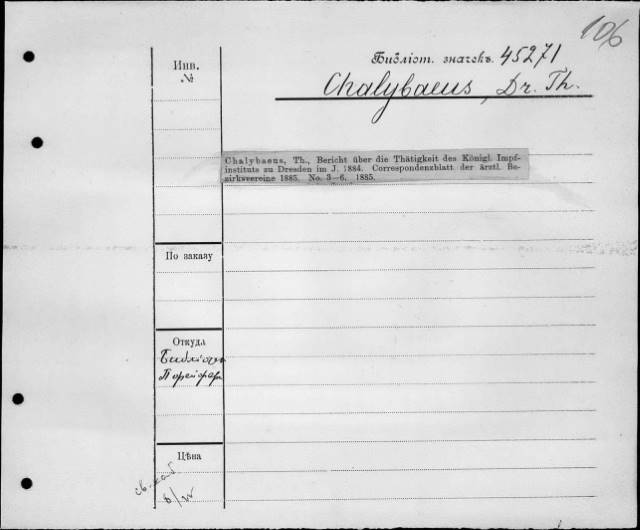 106
Библіот. значекъ 45271
Chalybaeus, Dr. Th.
Инв.
№
Chalybaeus, Th., Bericht über die Thätigkeit des Königl. Impf-
instituts zu Dresden im J. 1884. Correspondenzblatt der ärztl. Be-
zirksvereine 1885. No. 3—6. 1885.
По заказу
Откуда
Цѣна